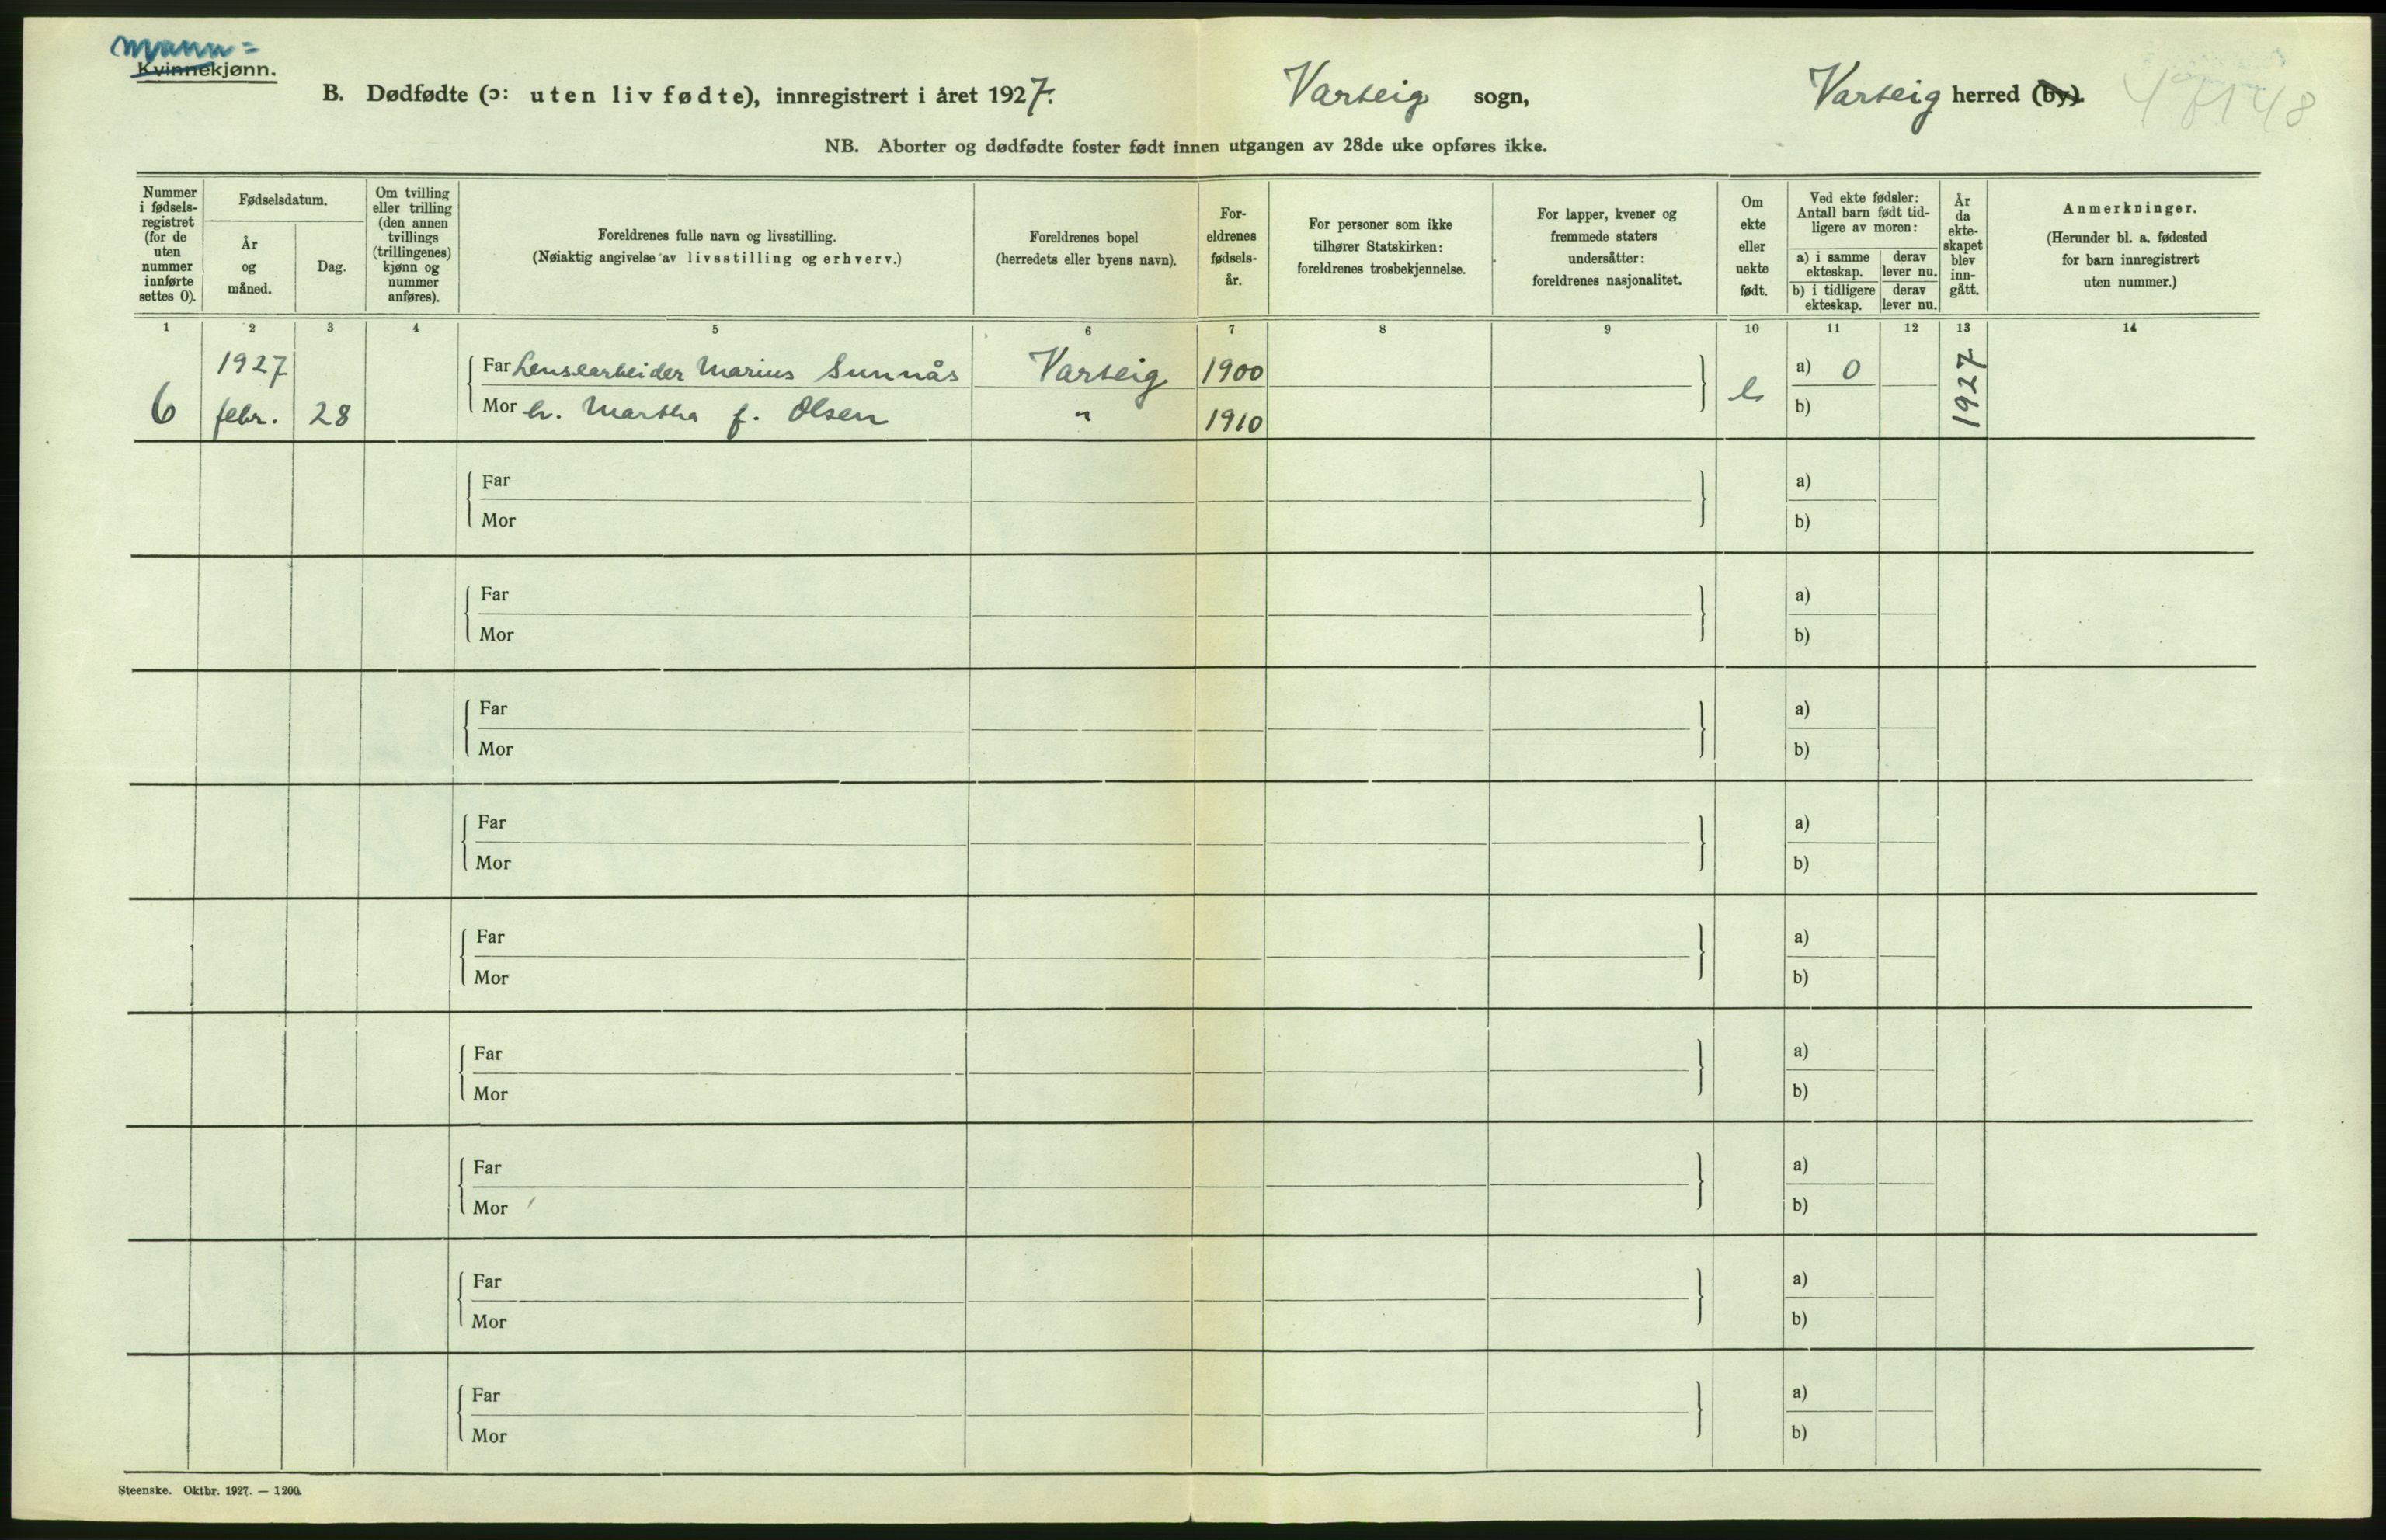 mann=
Kvinnekjønn.
B. Dødfødte (ɔ: uten liv fødte), innregistrert i året 1927. Varteig sogn, Varteig herred (by).
NB. Aborter og dødfødte foster født innen utgangen av 28de uke opføres ikke.
Nummer i fødselsregistret (for de uten nummer innførte settes 0).
Fødselsdatum.
År og måned.
Dag.
Om tvilling eller trilling (den annen tvillings (trillingenes) kjønn og nummer anføres).
Foreldrenes fulle navn og livsstilling.
(Nøiaktig angivelse av livsstilling og erhverv.)
Foreldrenes bopel
(herredets eller byens navn).
For-
eldrenes
fødsels-
år.
For personer som ikke
tilhører Statskirken:
foreldrenes trosbekjennelse.
For lapper, kvener og
fremmede staters
undersåtter:
foreldrenes nasjonalitet.
Om
ekte
eller
uekte
født.
Ved ekte fødsler:
Antall barn født tid-
ligere av moren:
a) i samme ekteskap.
derav lever nu.
b) i tidligere ekteskap.
derav lever nu.
År
da
ekte-
skapet
blev
inn-
gått.
Anmerkninger.
(Herunder bl. a. fødested
for barn innregistrert
uten nummer.)
1 2 3 4 5 6 7 8 9 10 11 12 13 14
1927 Far Lensearbeider Marius Sunnås Varteig 1900 a) 0
6 febr. 28 Mor h. Martha f. Olsen " 1910 e b) 1927
Far a)
Mor b)
Far a)
Mor b)
Far a)
Mor b)
Far a)
Mor b)
Far a)
Mor b)
Far a)
Mor b)
Far a)
Mor b)
Far a)
Mor b)
Far a)
Mor b)
Steenske. Oktbr. 1927. — 1200.